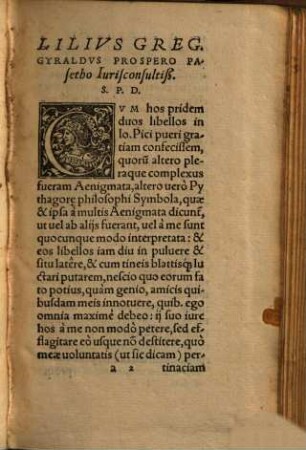 LILIVS GREG.
GYRALDVS PROSPERO PA-
setho Iurisconsultiss.
S. P. D.
CVM hos pridem
duos libellos in
Io. Pici pueri gra-
tiam confecissem,
quorũ altero ple-
raque complexus
fueram Aenigmata, altero uerò Py
thagoræ philosophi Symbola, quæ
& ipsa à multis Aenigmata dicunť,
ut uel ab alijs fuerant, uel à me sunt
quocunque modo interpretata: &
eos libellos iam diu in puluere &
situ latêre, & cum tineis blattisq; lu
ctari putarem, nescio quo eorum fa
to potius, quàm genio, amicis qui
busdam meis innotuere, quib. ego
omnia maximè debeo: ij suo iure
hos à me non modò petere, sed ef-
flagitare eò usque nõ destitere, quò
meæ uoluntatis (ut sic dicam) per-
a 2 tinaciam